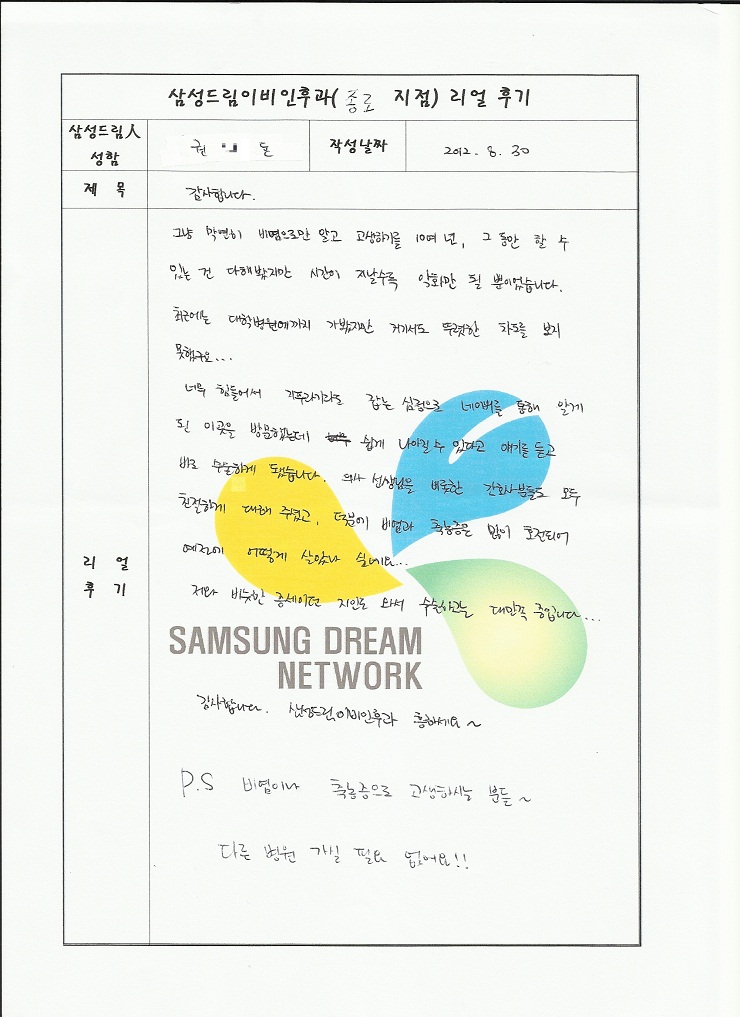 삼성드림이비인후과(종로 지점) 리얼 후기
삼성드림人 성함
권 돈
작성날짜
2012. 8. 30
제 목
감사합니다.
리 얼 후 기
그냥 막연히 비염으로만 알고 고생하기를 10여 년, 그 동안 할 수
있는 건 다해봤지만 시간이 지날수록 악화만 될 뿐이었습니다.
최근에는 대학병원에까지 가봤지만 거기서도 뚜렷한 차도를 보지
못했구요...
너무 힘들어서 지푸라기라도 잡는 심정으로 네이버를 통해 알게
된 이곳을 방문했는데 쉽게 나아질 수 있다고 얘기를 듣고
바로 수술하게 됐습니다. 의사 선생님을 비롯한 간호사분들도 모두
친절하게 대해 주셨고, 덕분에 비염과 축농증은 많이 호전되어
예전에 어떻게 살았나 싶네요...
저와 비슷한 증세이던 지인도 와서 수술하고는 대만족 중입니다...
SAMSUNG DREAM
NETWORK
감사합니다. 삼성드림이비인후과 흥하세요~
P.S 비염이나 축농증으로 고생하시는 분들~
다른 병원 가실 필요 없어요!!